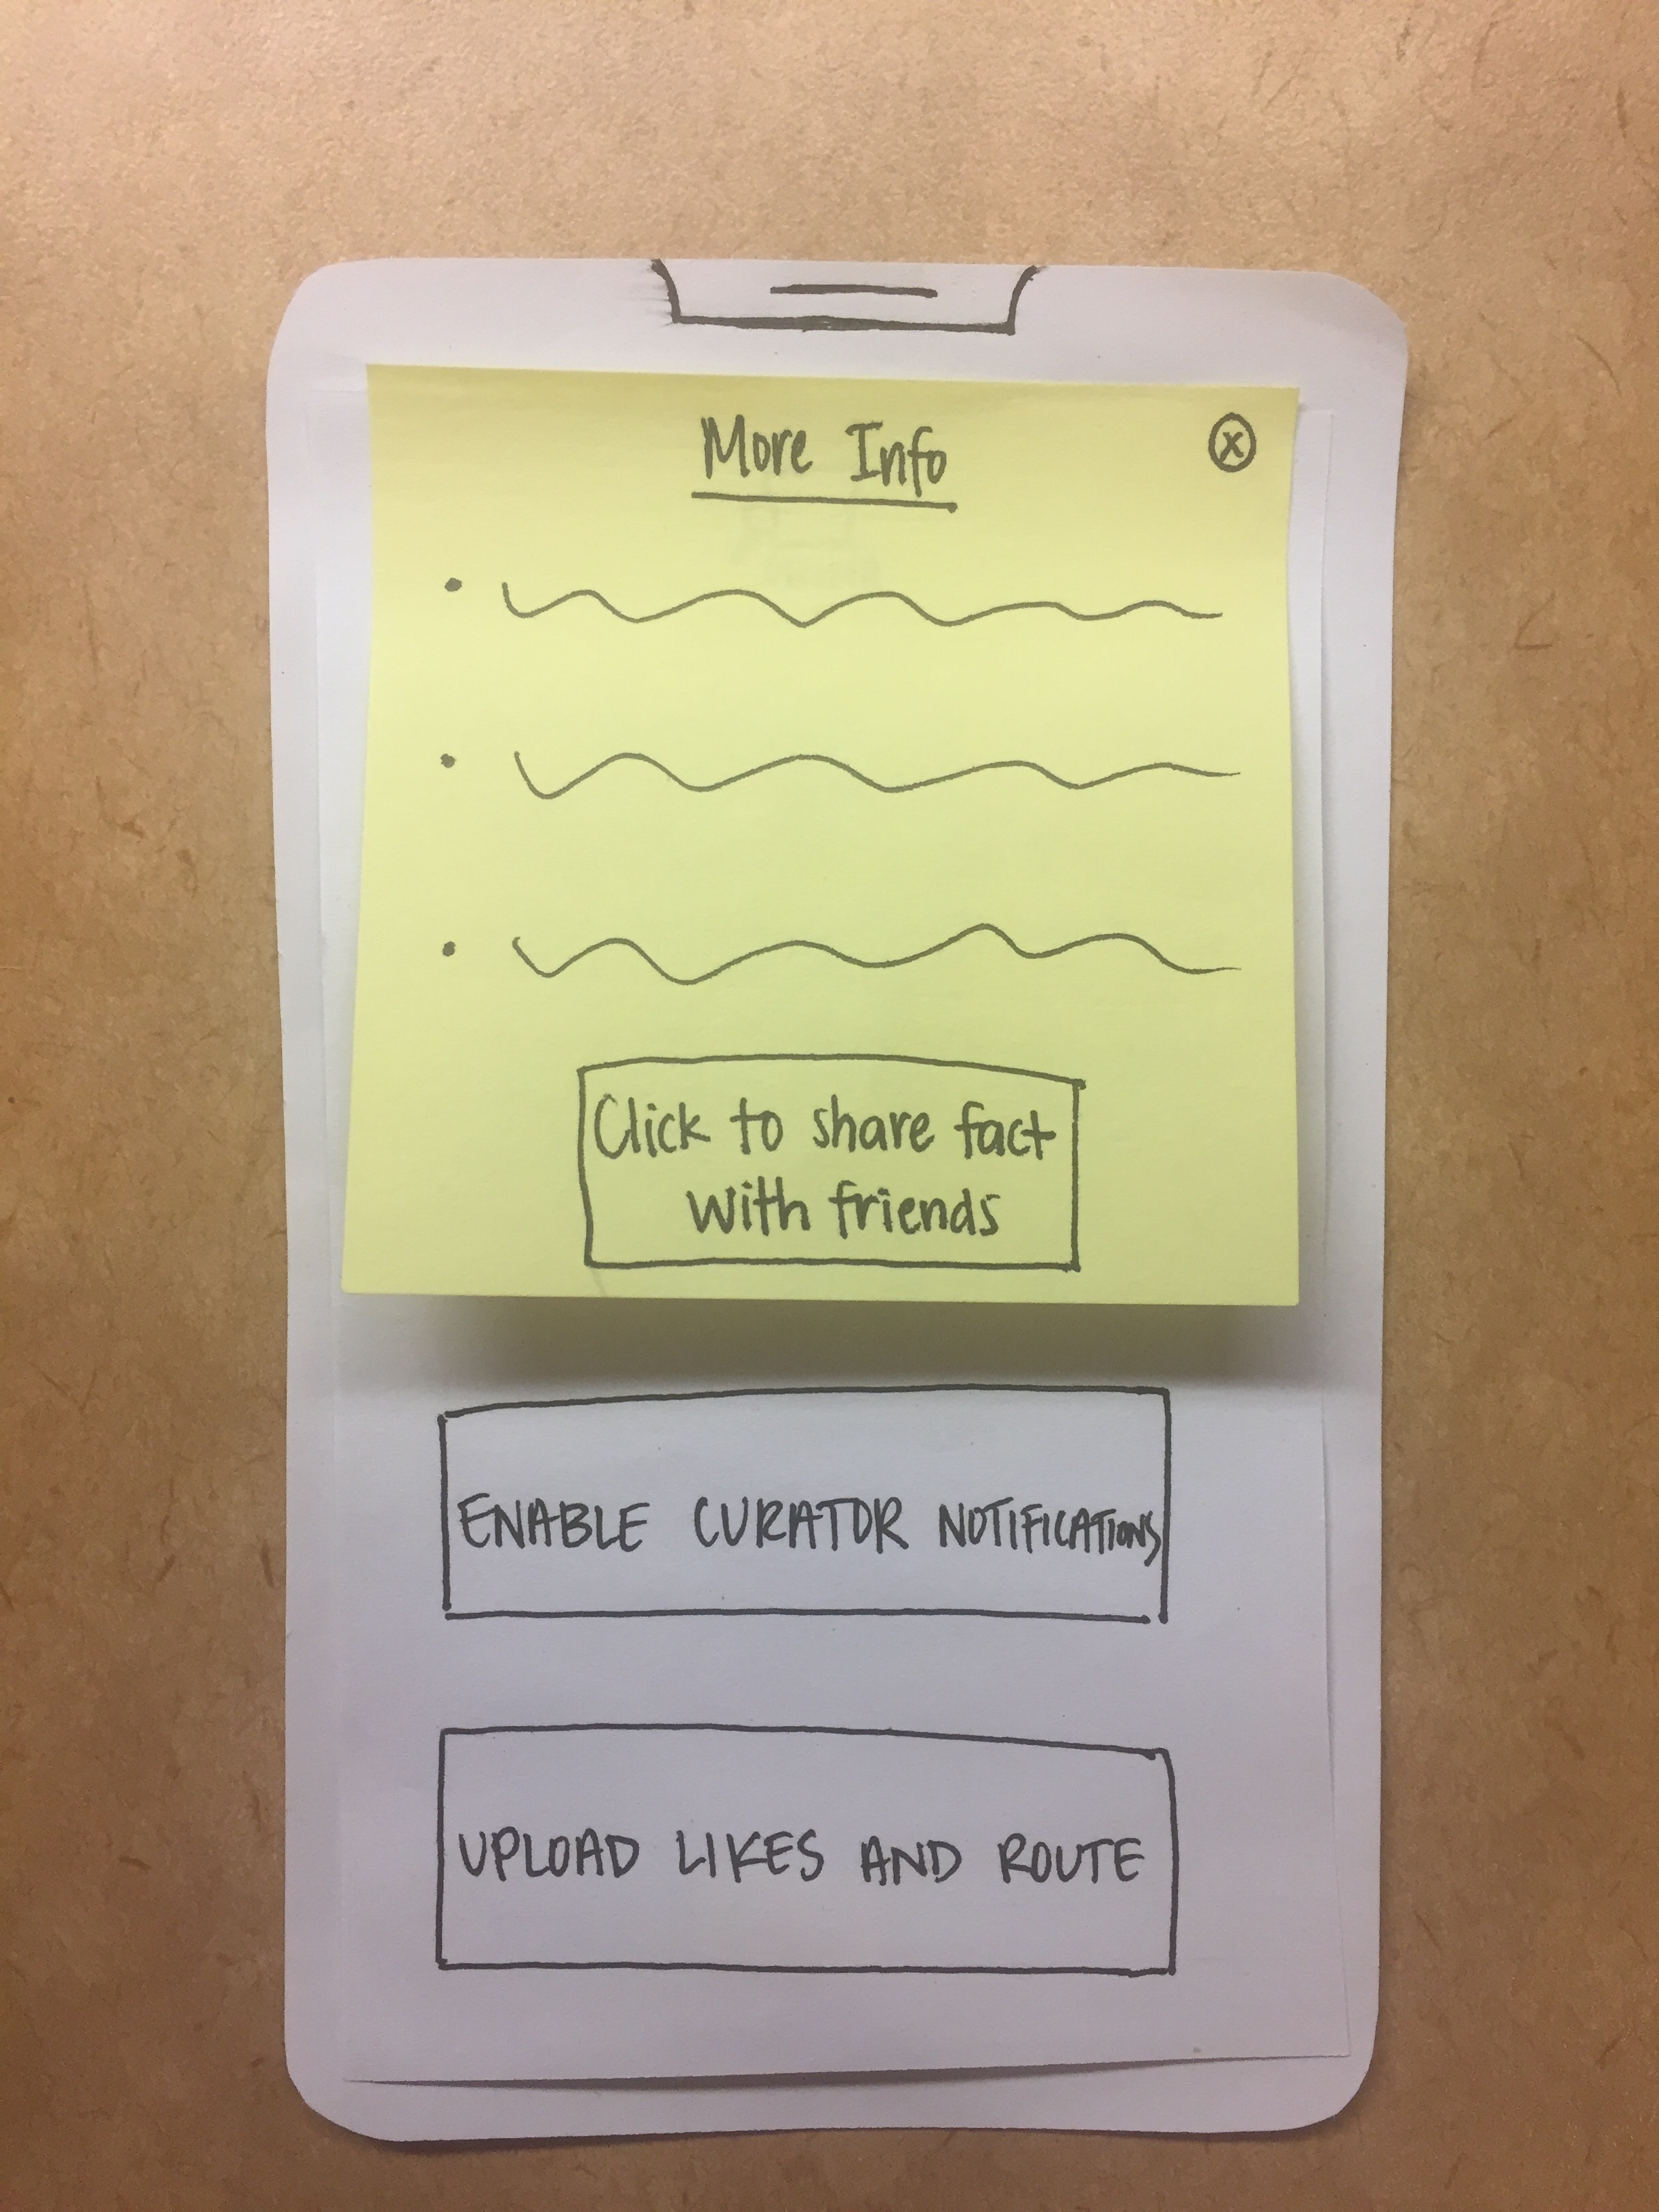 More Info
x
Click to share fact
with friends
ENABLE CURATOR NOTIFICATIONS
UPLOAD LIKES AND ROUTE